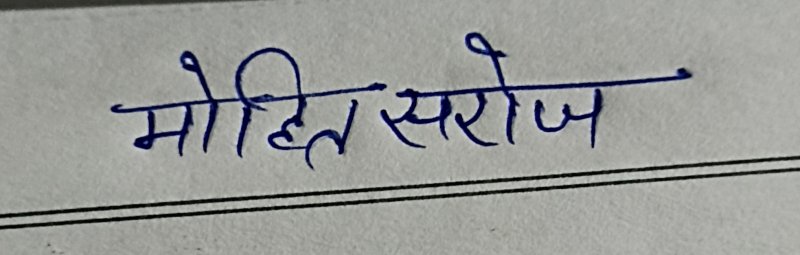 मोहित सरोज